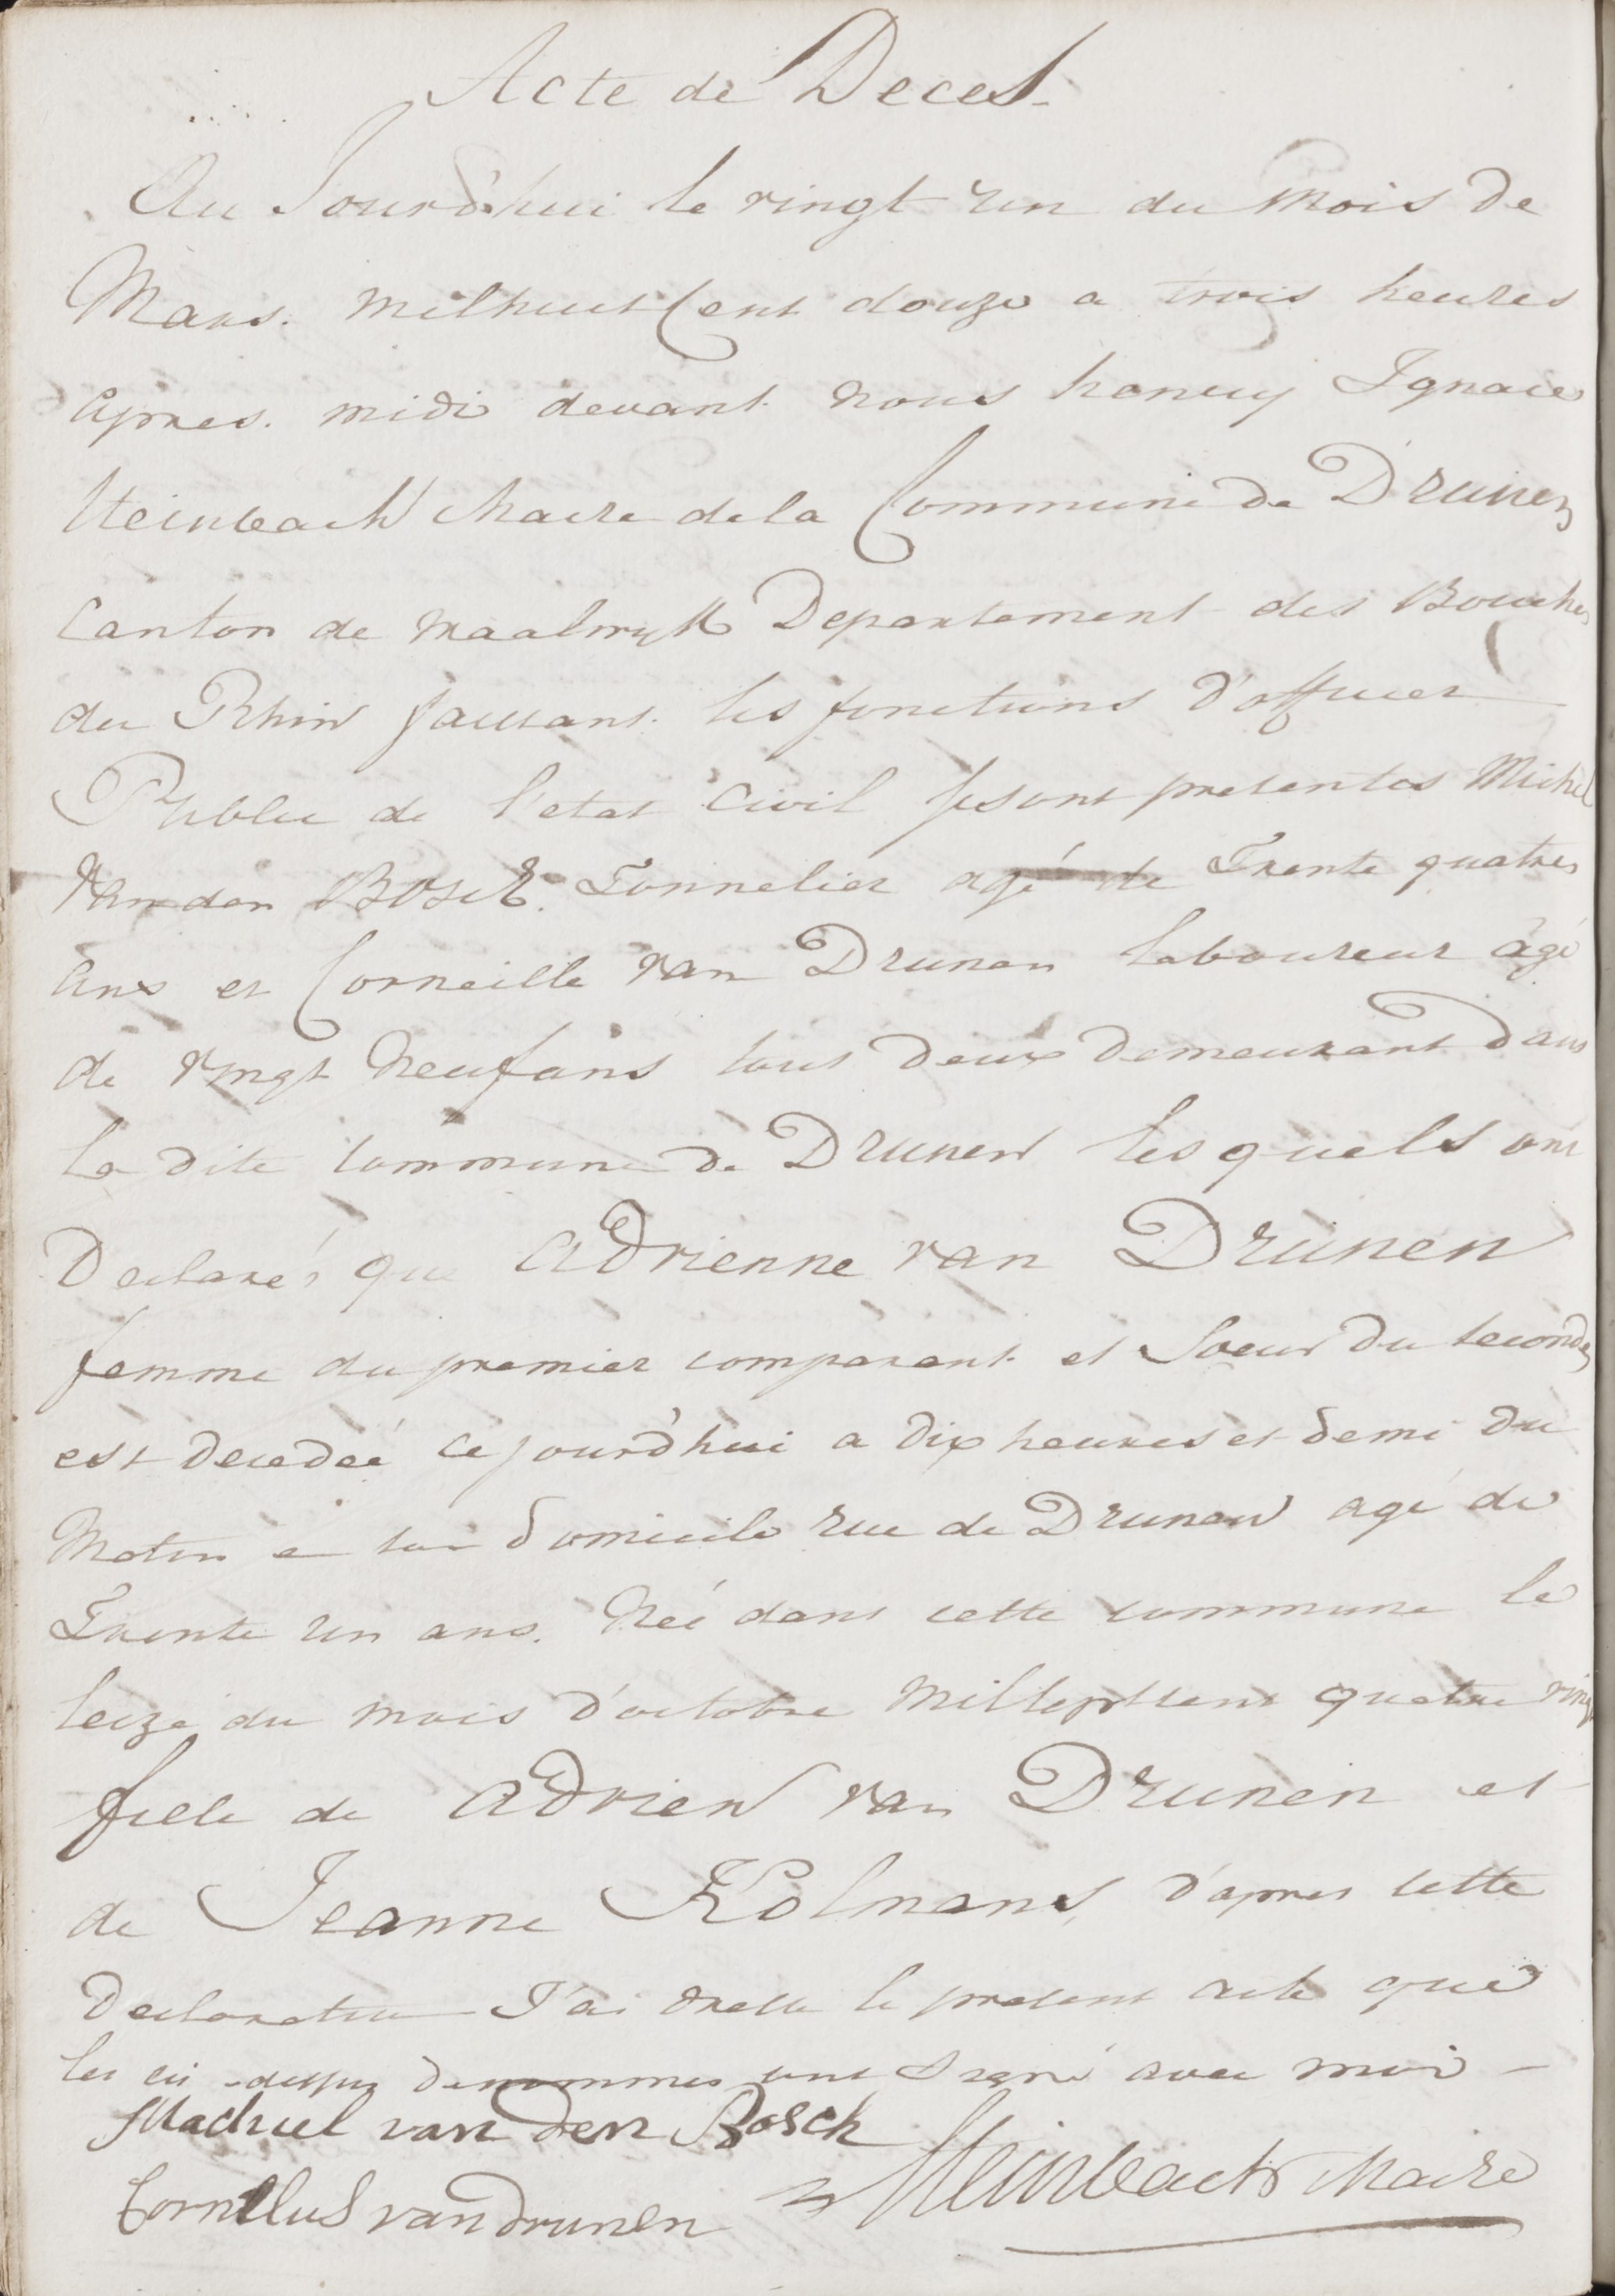 Acte de Deces
Au Jourd'hui le vingt un du Mois de
Mars. milhuit Cent douze a trois heures
apres. midi devant nous hanry Ignace
Steinbach Maire de la Commune de Drunen
Canton de Waalwyk Departement des Bouches
du Rhin faissant les fonctions d'officier
Public de l'etat Civil se sont presentes Michel
van den Bosch. Tonnelier agé de Trente quatre
ans et Corneille van Drunen laboureur agé
de vingt neuf ans tout deux demeurant dans
la dite Commune de Drunen les quels ont
Declaré que Adrienne van Drunen
femme du premier comparant et Soeur du second
est decedeé ce jourd'hui a dix heures et demi du
Matin en son domicile rue de Drunen agé de
Trente un ans. Neé dans cette commune le
seize du mois d'octobre Milleseptcent quatre vingt
fille de Adrien van Drunen et
de Jeanne Kolmans d'apres cette
Declaration J'ai dressé le present acte que
les ci-dessus denommes ont signé avec moi
Machiel van den Bosch
Steinbach Maire
Cornelus van drunen